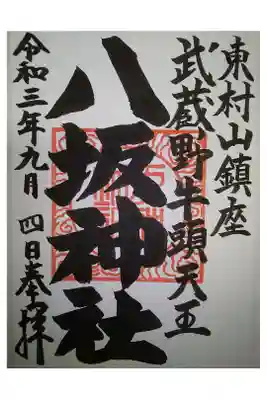 東村山鎮座
武蔵野牛頭天王
八坂神社
令和三年九月四日奉拝